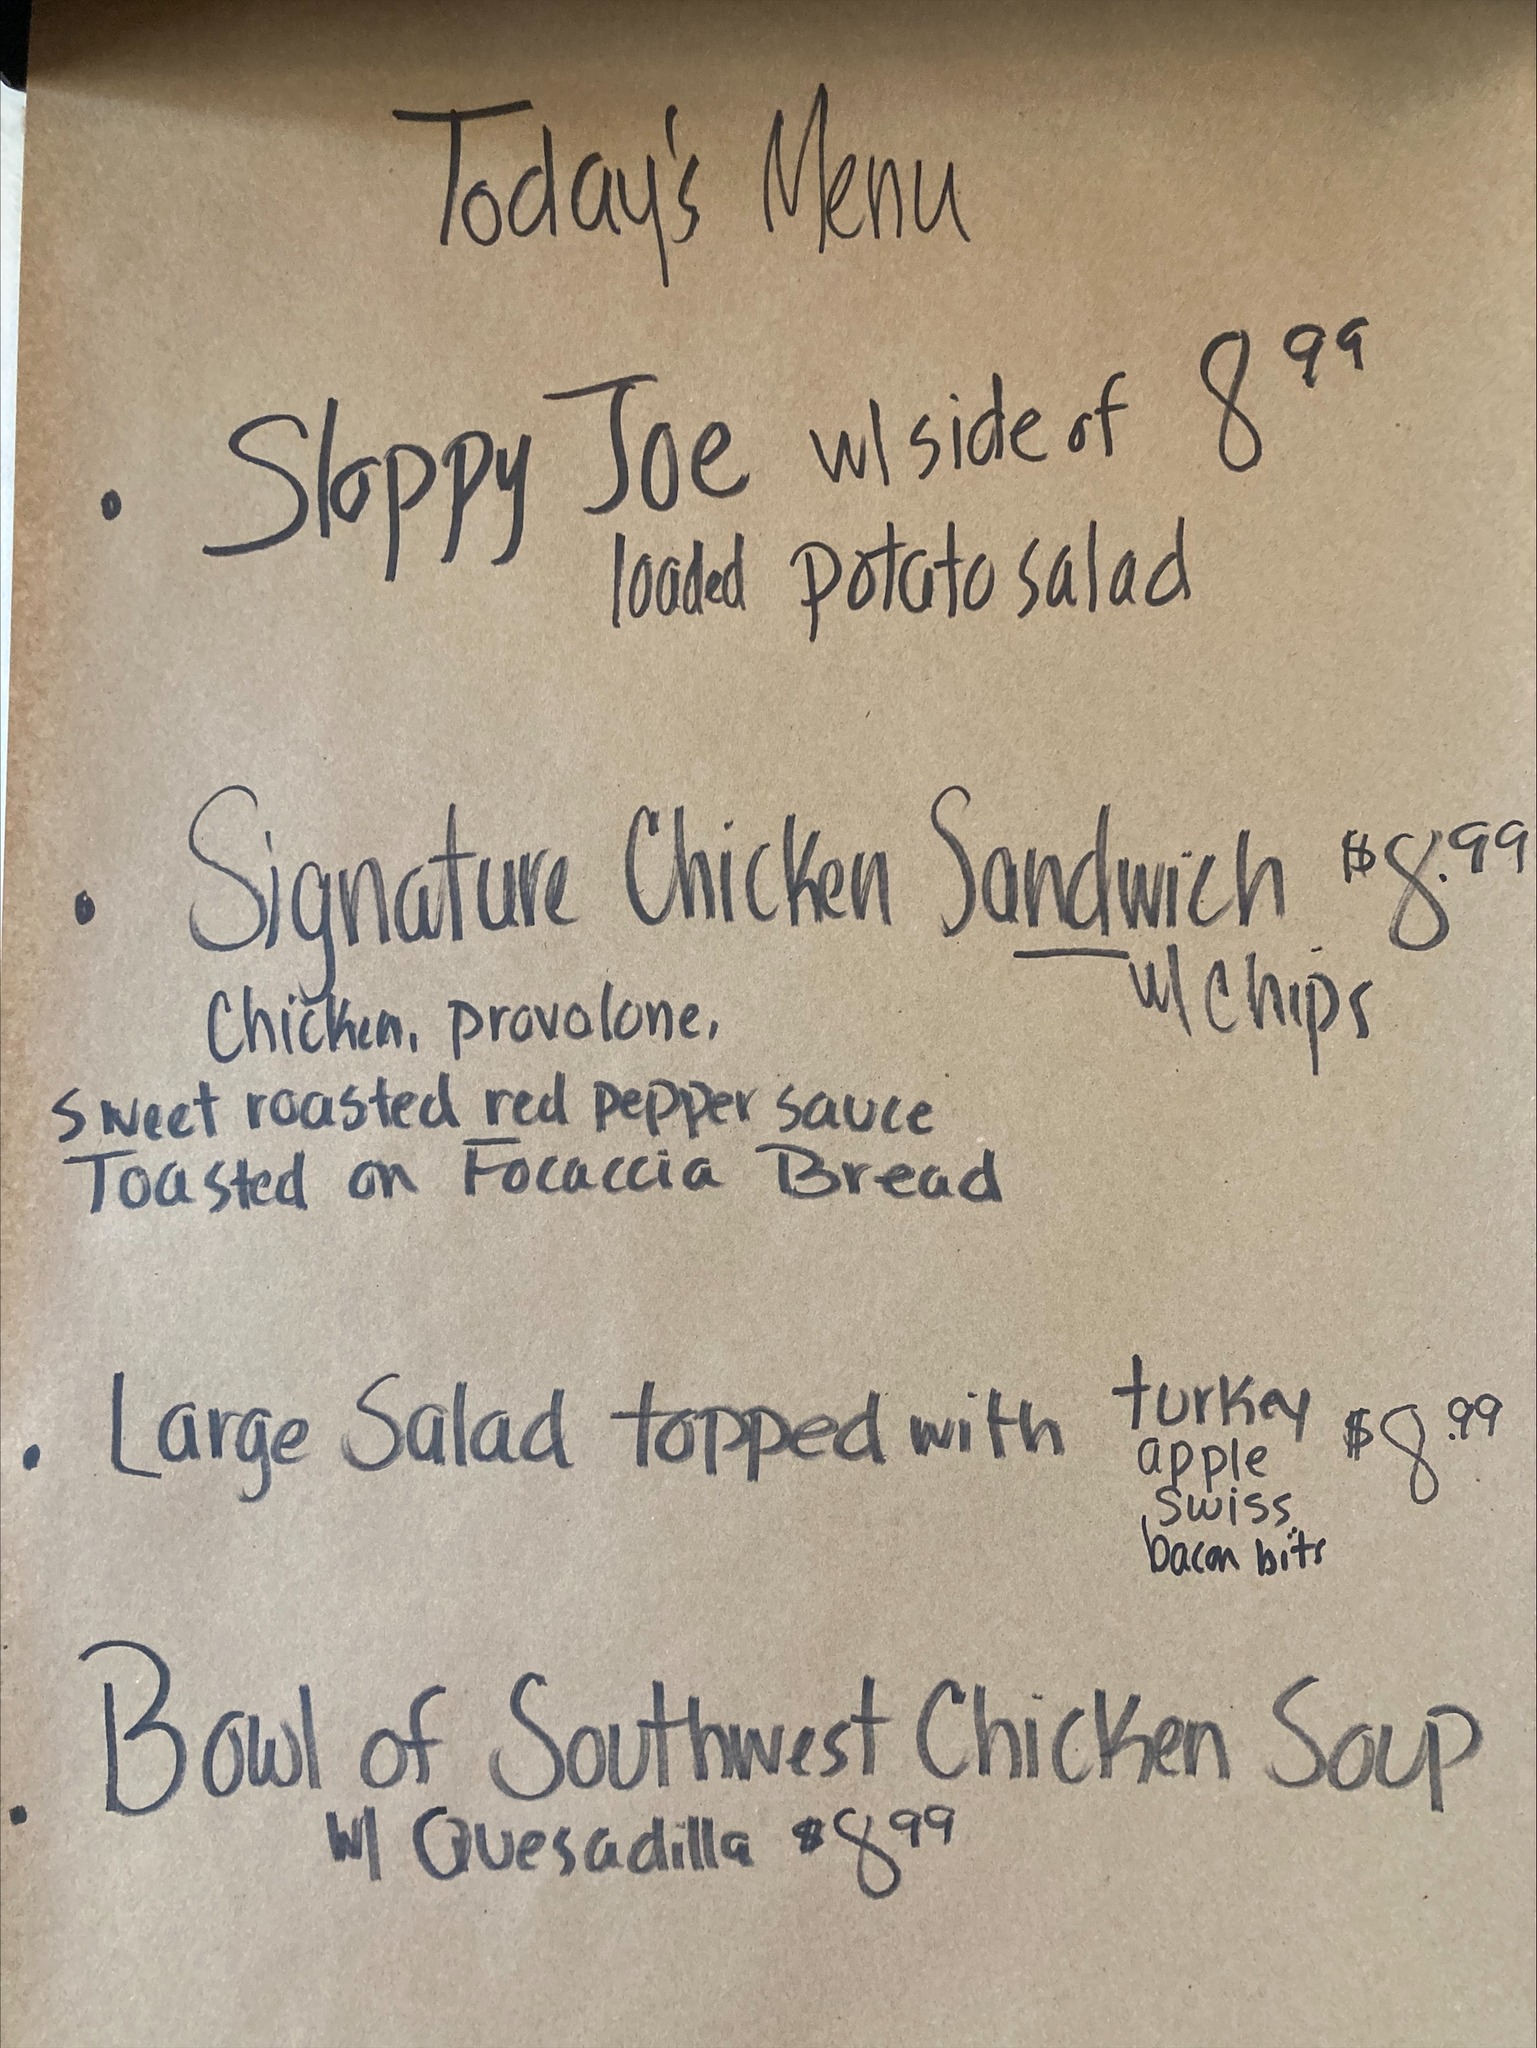 Today's Menu
• Sloppy Joe w/ side of 8 99
loaded potato salad
• Signature Chicken Sandwich $8.99
w/ chips
Chicken, provolone,
sweet roasted red pepper sauce
Toasted on Focaccia Bread
• Large Salad topped with turkey $8.99
apple
swiss
bacon bits
• Bowl of Southwest Chicken Soup
w/ Quesadilla $8 99